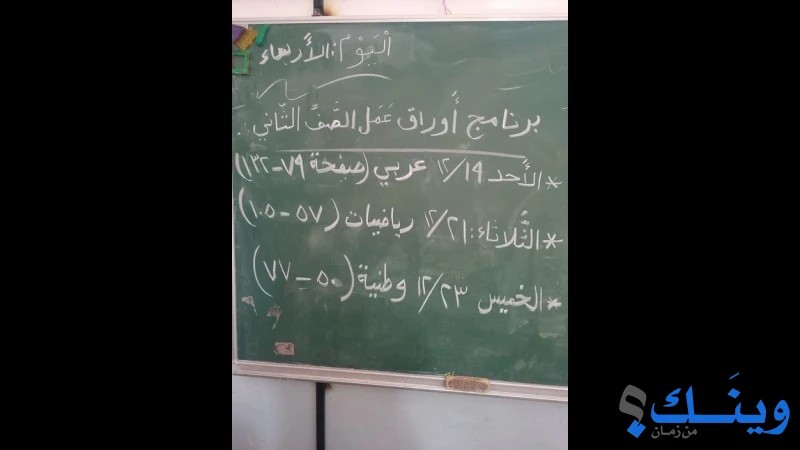 الْيَوْمُ: الأَربعاء
برنامج أَوراق عَمَل الصَّفِّ الثّاني:
* الأَحد ١٢/١٩ عربي (صفحة ٧٩-١٣٢)
* الثُّلاثاء: ١٢/٢١ رياضيات (٥٧-١٠٥)
* الخميس ١٢/٢٣ وطنية (٥٠-٧٧)
وينَـك؟
من زمـان